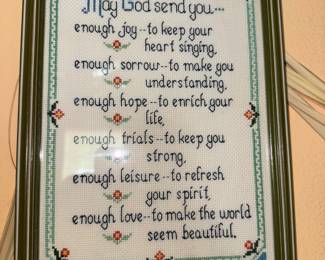 May God send you...
enough joy--to keep your
heart singing,
enough sorrow--to make you
understanding,
enough hope--to enrich your
life,
enough trials--to keep you
strong,
enough leisure--to refresh
your spirit,
enough love--to make the world
seem beautiful.